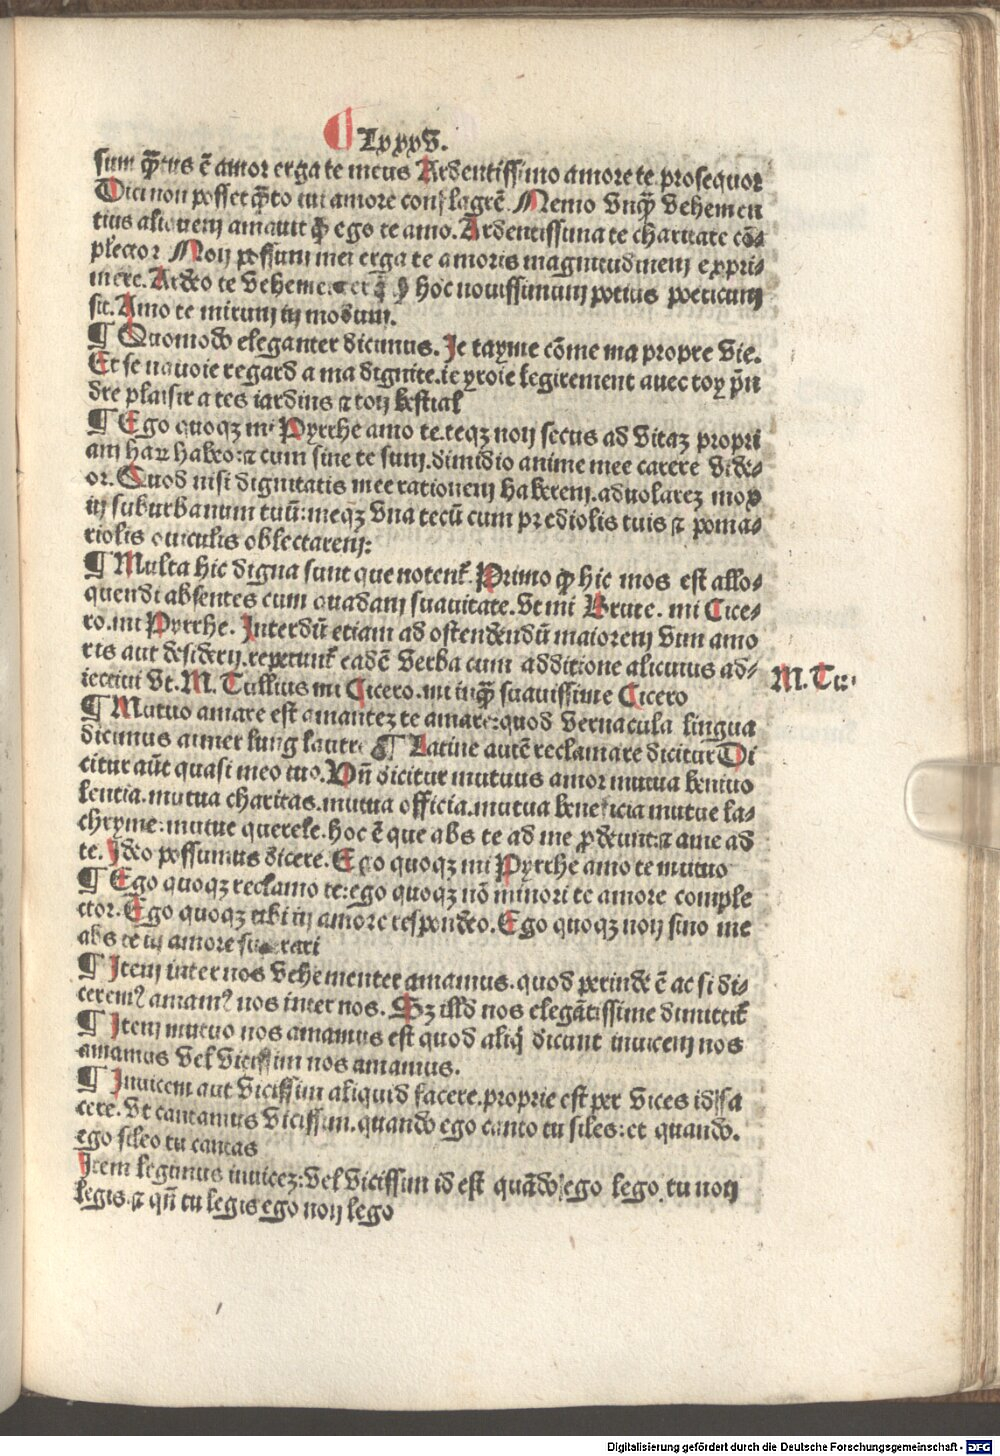 ¶ Lxxxv.
sum q̄tus ē amor erga te meus Ardentissimo amore te prosequor
Dici non posset q̄to tui amore conflagrē. Nemo vnq̄ vehemen
tius aliquem amauit q̄ ego te amo. Ardentissima te charitate cō⸗
plector Non possum mei erga te amoris magnitudinem expri⸗
mere. Ardeo te hoc nouissimum potius poeticum
sit. Amo te mirum in modum.
¶ Quomodo eleganter dicimus. Je tayme cōme ma propre vie.
Et se nauoie regard a ma dignite. ie yroie legirement auec toy pñ
dre plaisir a tes iardins ⁊ ton bestial
¶ Ego quoqꝫ mi Pyrrhe amo te. teqꝫ non secus ad vitaꝫ propri
am haꝝ habeo: ⁊ cum sine te sum. dimidio anime mee carere vide⸗
or. Quod nisi dignitatis mee rationem haberem. aduolareꝫ mox
in suburbanum tuū: meqꝫ vna tecū cum prediolis tuis ⁊ poma⸗
riolis ouiculis oblectarem:
¶ Multa hic digna sunt que notent̄. Primo ꝙ hic mos est allo⸗
quendi absentes cum quadam suauitate. Vt mi Brute. mi Cice⸗
ro. mi Pyrrhe. Interdū etiam ad ostendendū maiorem vim amo
ris aut desiderij. repetunt̄ eadē verba cum additione alicuius ad⸗
iectiui vt. M. Tullius mi Cicero. mi inq̄ suauissime Cicero
M. Tu.
¶ Mutuo amare est amanteꝫ te amare: quod vernacula lingua
dicimus aimer lung lautre ¶ Latine autē reclamare dicitur Di
citur aūt quasi meo tuo. Vñ dicitur mutuus amor mutua beniuo
lentia. mutua charitas. mutua officia. mutua beneficia mutue la⸗
chryme: mutue querele. hoc ē que abs te ad me ꝓdeunt: ⁊ a me ad
te. Ideo possumus dicere. Ego quoqꝫ mi Pyrrhe amo te mutuo
¶ Ego quoqꝫ reclamo te: ego quoqꝫ nō minori te amore comple
ctor. Ego quoqꝫ tibi in amore respondeo. Ego quoqꝫ non sino me
abs te in amore superari
¶ Item inter nos vehementer amamus. quod perinde ē ac si di⸗
ceremꝰ amamꝰ nos inter nos. Sꝫ illd nos elegātissime dimittit̄
¶ Item mutuo nos amamus est quod aliq̇ dicunt inuicem nos
amamus vel vicissim nos amamus.
¶ Inuicem aut vicissim aliquid facere. proprie est per vices id fa
cere. Vt cantamus vicissim. quando ego canto tu siles: et quando.
ego sileo tu cantas
Item legimus inuiceꝫ: vel vicissim id est quādo ego lego. tu non
legis. ⁊ qñ tu legis ego non lego
Digitalisierung gefördert durch die Deutsche Forschungsgemeinschaft - DFG